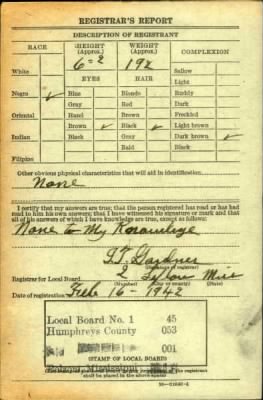 REGISTRAR'S REPORT
DESCRIPTION OF REGISTRANT
RACE
HEIGHT
(Approx.)
WEIGHT
(Approx.)
COMPLEXION
6-2
192
White
Sallow
EYES
HAIR
Light
Negro ✓
Blue
Blonde
Ruddy
Gray
Red
Dark
Oriental
Hazel
Brown
Freckled
Brown ✓
Black ✓
Light brown
Indian
Black
Gray
Dark brown ✓
Bald
Black
Filipino
Other obvious physical characteristics that will aid in identification
None
I certify that my answers are true; that the person registered has read or has had
read to him his own answers; that I have witnessed his signature or mark and that
all of his answers of which I have knowledge are true, except as follows:
None to My Knowledge
Gardner
(Signature of registrar)
Registrar for Local Board 2 Miss
(Number) (City or county) (State)
Date of registration Feb 16 - 1942
Local Board No. 1 45
Humphreys County 053
001
Mississippi
(STAMP OF LOCAL BOARD)
shall be placed in the above space)